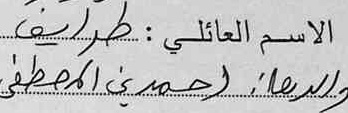 الاسم العائلي : طرايف
والديها: احمد بن المصطفى